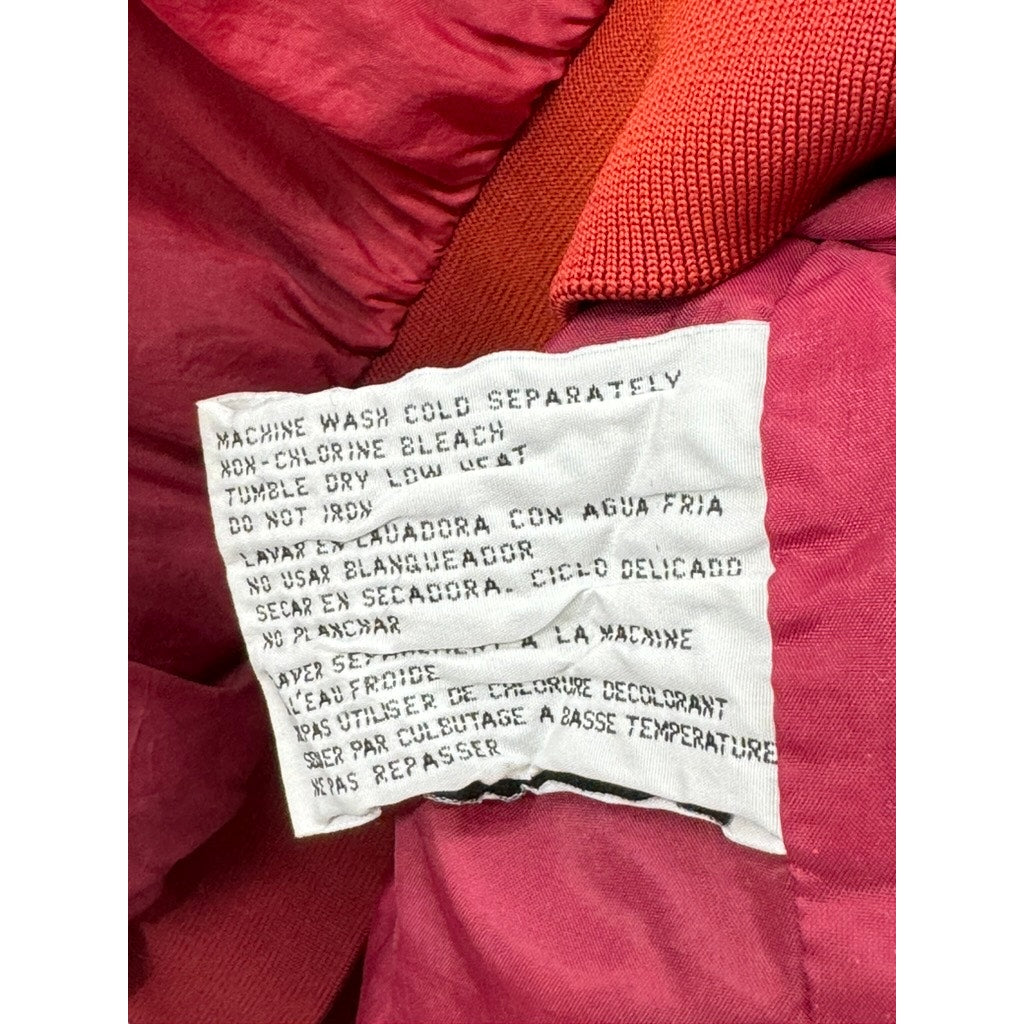 MACHINE WASH COLD SEPARATELY
NON-CHLORINE BLEACH
TUMBLE DRY LOW HEAT
DO NOT IRON
LAVAR EN LAVADORA CON AGUA FRIA
NO USAR BLANQUEADOR
SECAR EN SECADORA. CICLO DELICADO
NO PLANCHAR
LAVER SEPAREMENT A LA MACHINE
L'EAU FROIDE
PAS UTILISER DE CHLORURE DECOLORANT
PAR CULBUTAGE A BASSE TEMPERATURE
NE PAS REPASSER